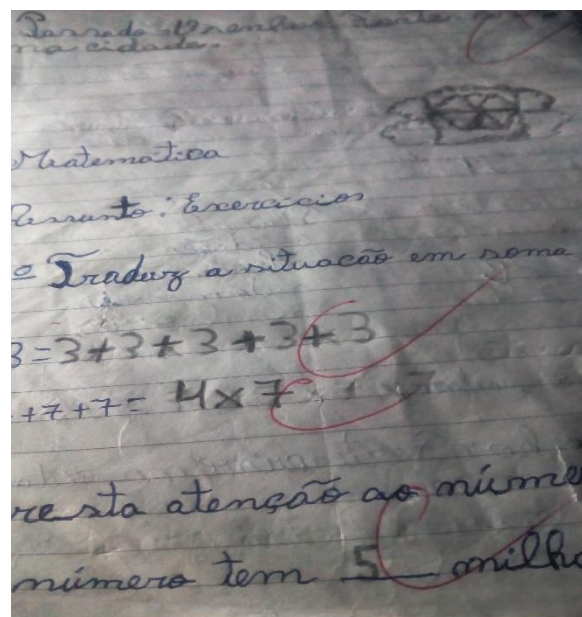 na cidade.
Matemática
Assunto: Excercicios
º Traduz a situação em soma
3=3+3+3+3+3
+7+7= 4x7
resta atenção ao núme
número tem 5 milhõ